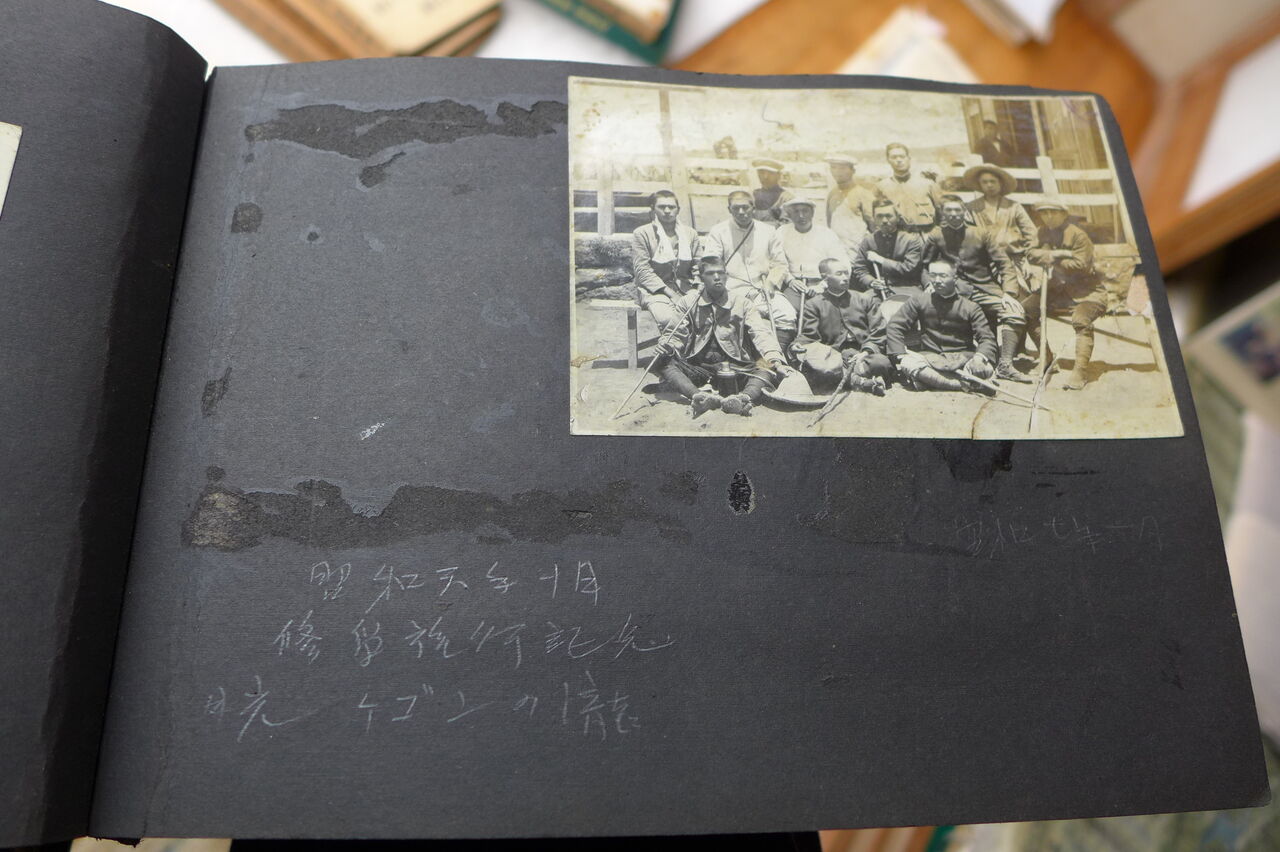 昭和六年十月
修学旅行記念
日光 ケゴンの瀧
昭和七年一月